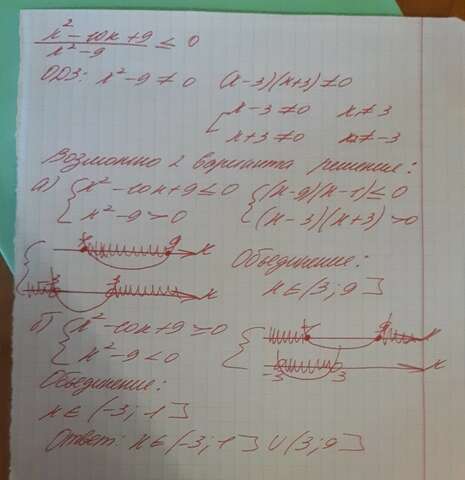 x² - 10x + 9 / x² - 9 ≤ 0
ОДЗ: x² - 9 ≠ 0 (x - 3)(x + 3) ≠ 0
x - 3 ≠ 0 x ≠ 3
x + 3 ≠ 0 x ≠ -3
Возможно 2 варианта решения:
а) { x² - 10x + 9 ≤ 0 { (x - 9)(x - 1) ≤ 0
x² - 9 > 0 (x - 3)(x + 3) > 0
1 9 x
Объединение:
-3 3 x
x ∈ (3; 9]
б) { x² - 10x + 9 ≥ 0
1 9 x
x² - 9 < 0
-3 3 x
Объединение:
x ∈ (-3; 1]
Ответ: x ∈ (-3; 1] ∪ (3; 9]